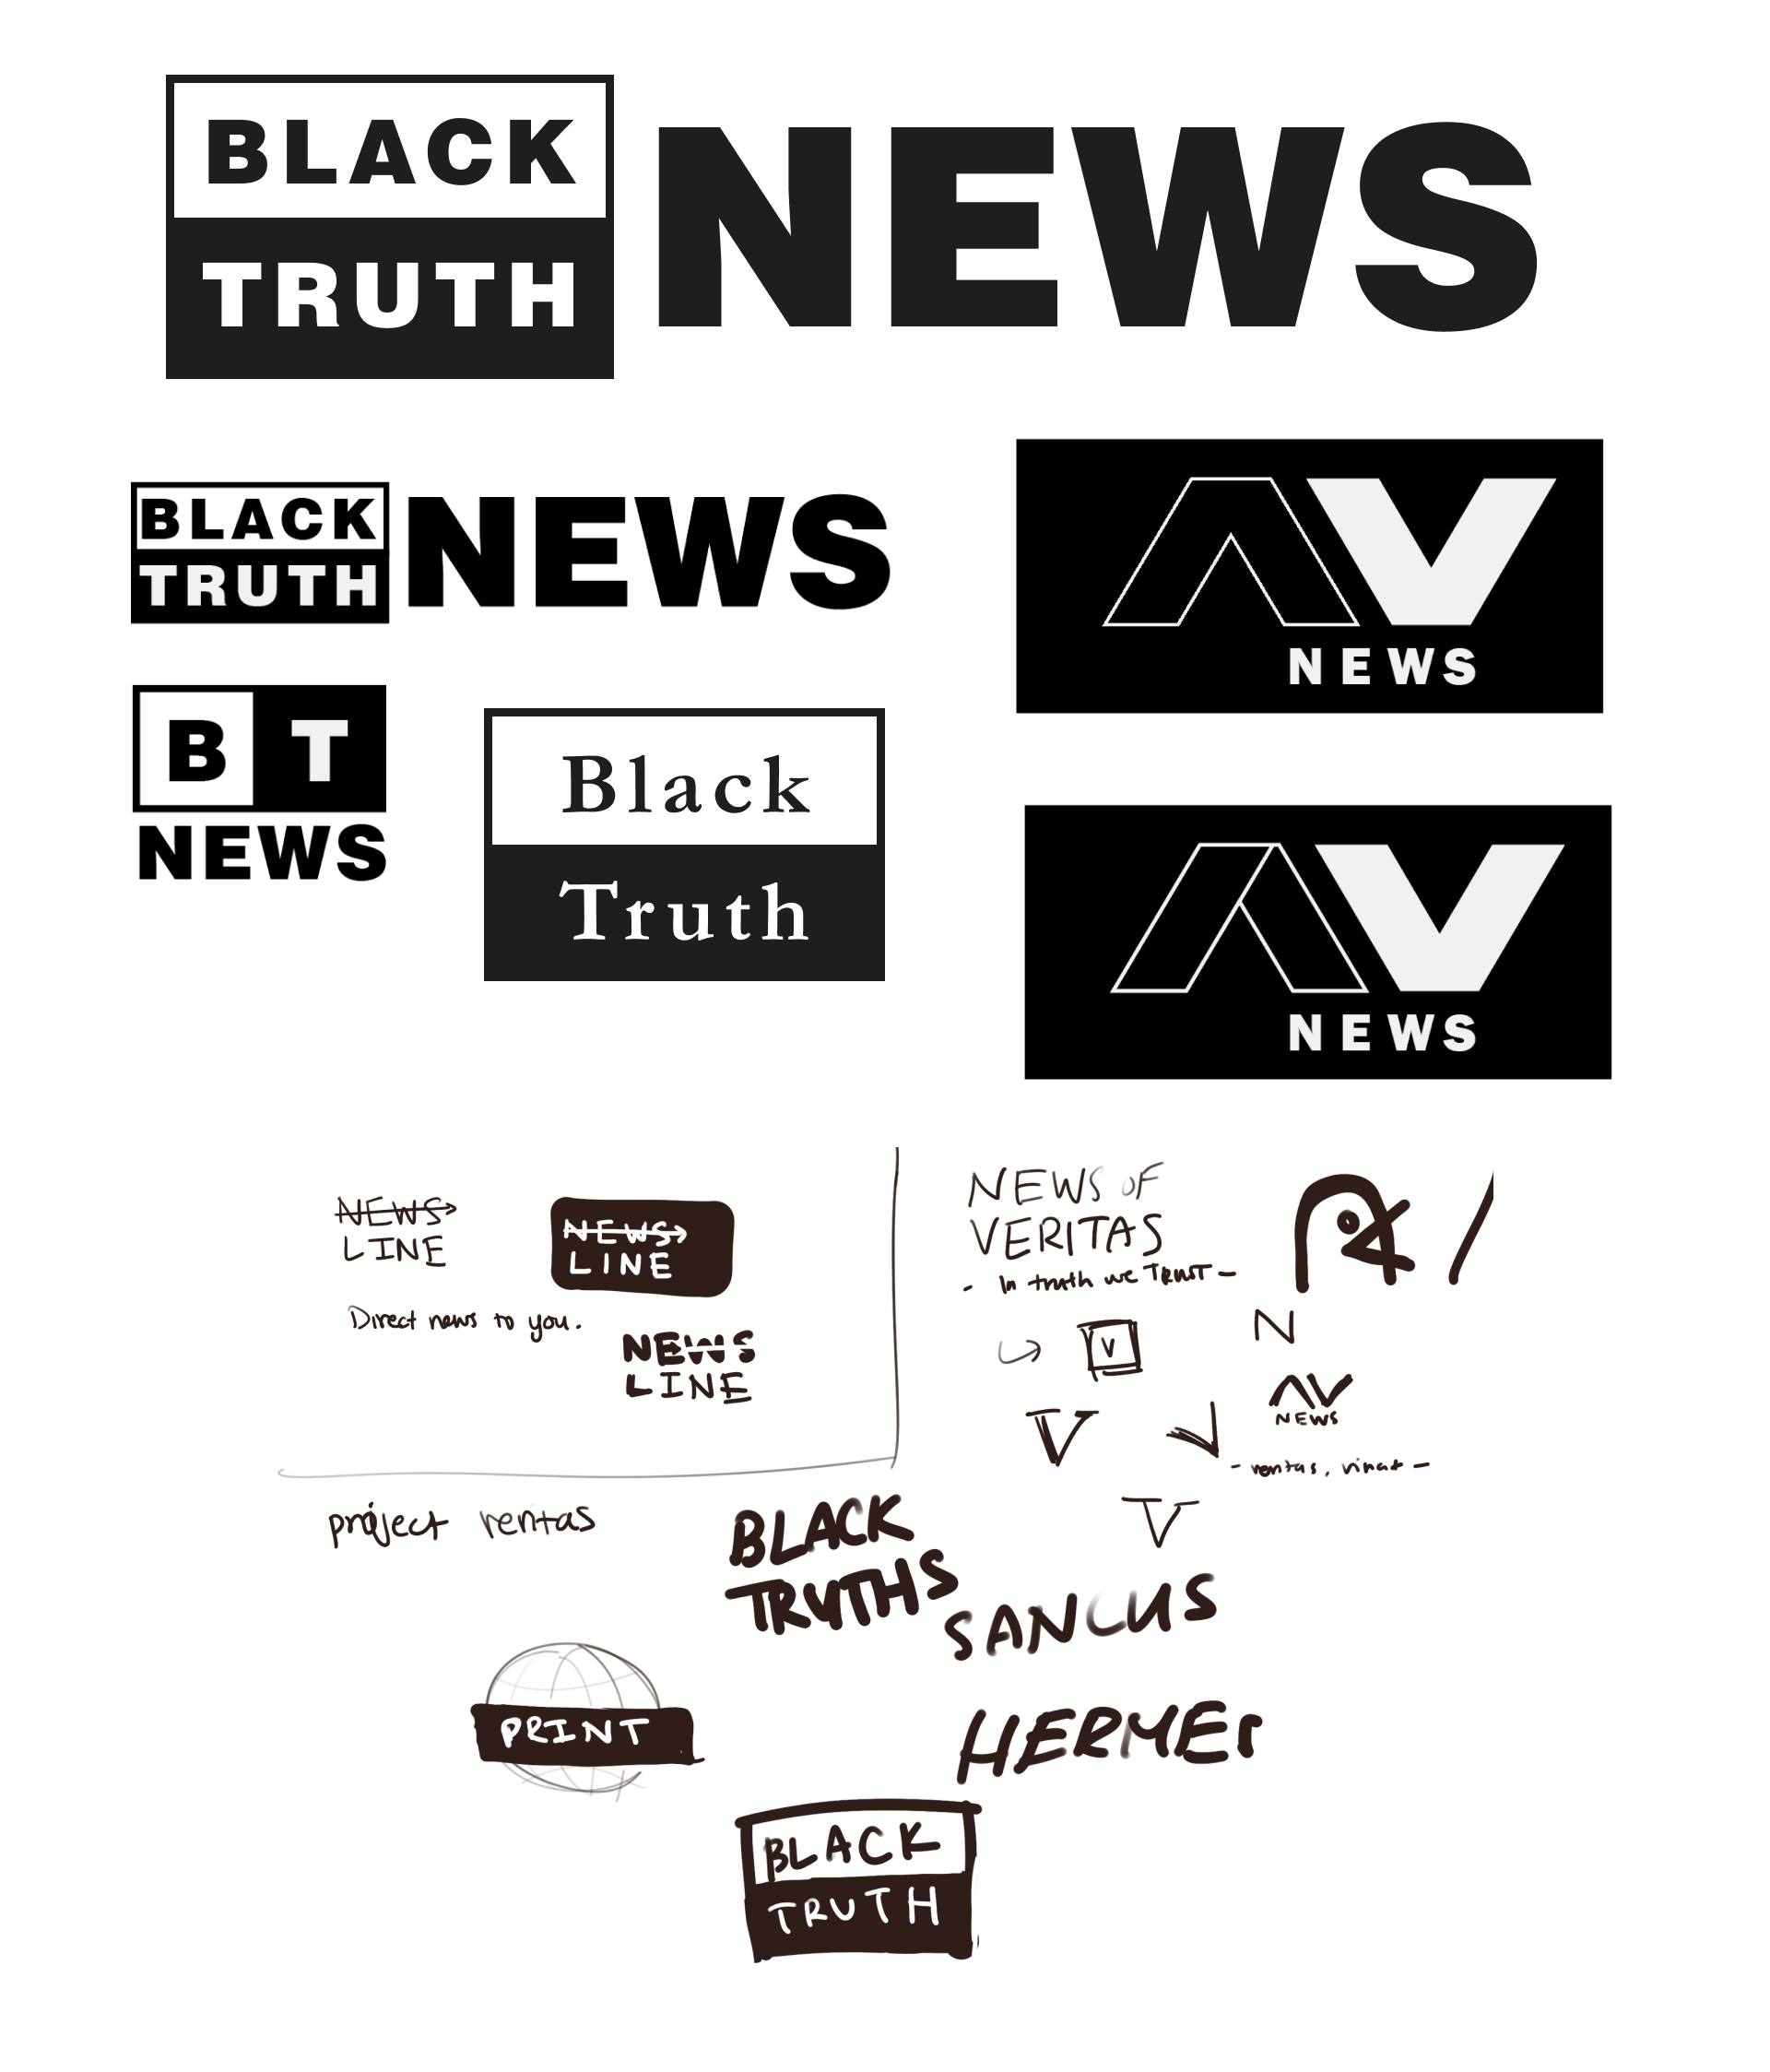 BLACK
TRUTH
NEWS
BLACK
TRUTH
NEWS
B T
NEWS
Black
Truth
NV
NEWS
NV
NEWS
NEWS
LINE
Direct news to you.
NEWS
LINE
NEWS
LINE
NEWS OF
VERITAS
- In truth we Trust -
V
N
V
NV
NEWS
V
project veritas
BLACK
TRUTHS
SANCUS
PRINT
HERMES
BLACK
TRUTH